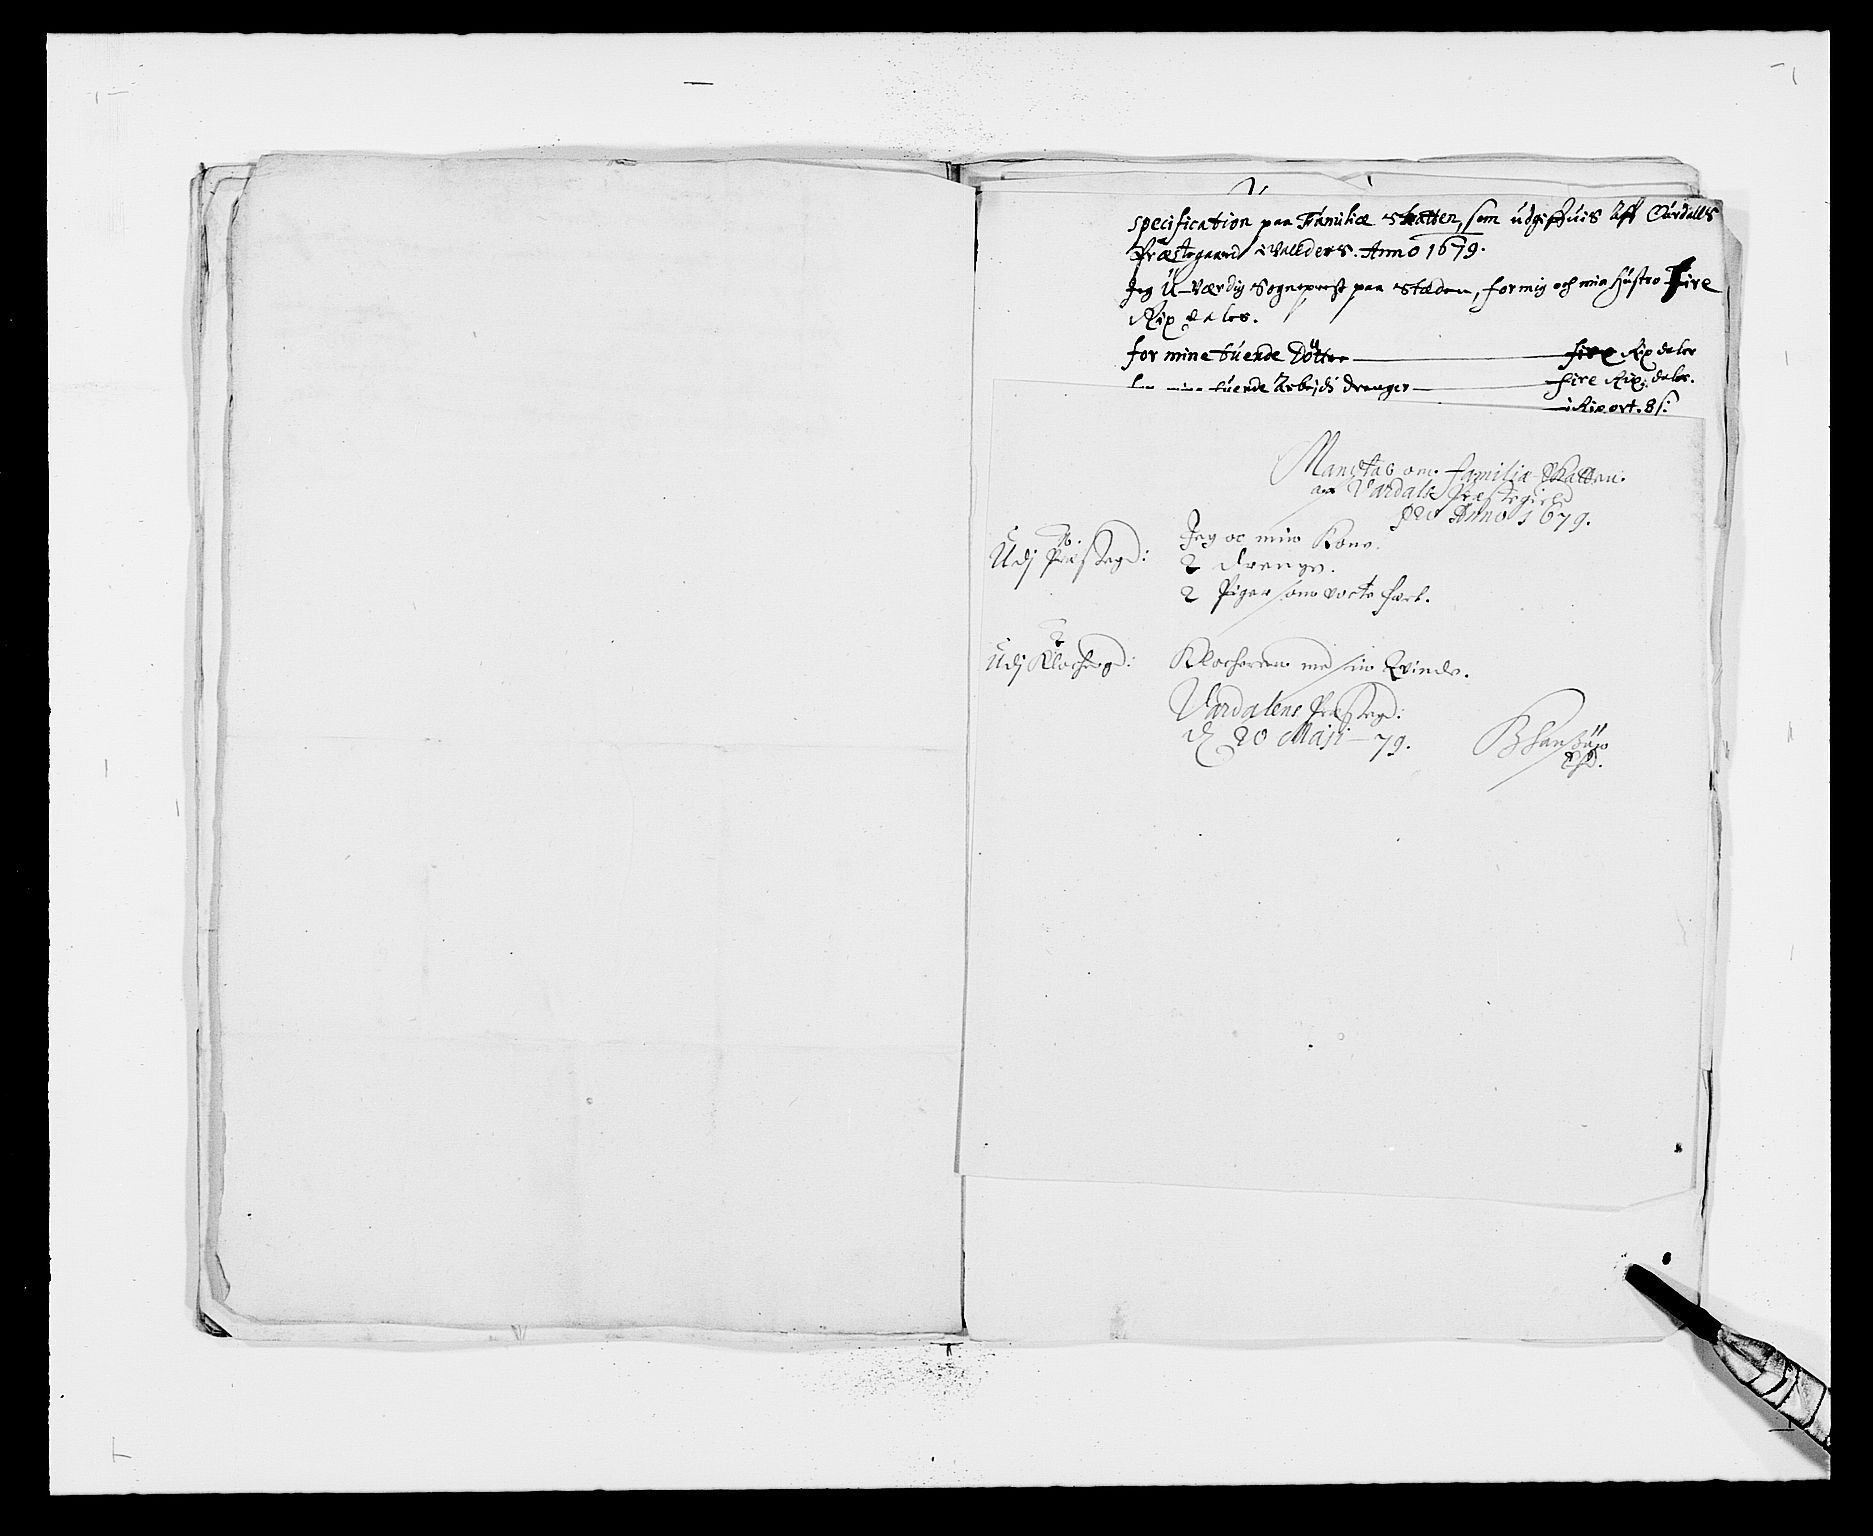 Specification paa Familiæ Skatten, som udgiffuis Aff Ourdalls
Præstegaard i Valders. Anno 1679.
Jeg U-værdig Sogneprest paa Stæden, for mig och min Hustro Fire
Rix daler.
for mine tuende Döttre fire Rix daler
tuende Arbejds drenger fire Rix: daler.
i Rix ort. 8 s:
Mandtal om familie Skatten.
Vardals Præstegield
pro Anno 1679.
Udj Præstegd: Jeg oc min Kone.
2 drenge.
2 Piger som
2
Udj Klockergd: Klockeren med sin Qvinde.
Vardalens Præstegd:
d 20 Maji 79.